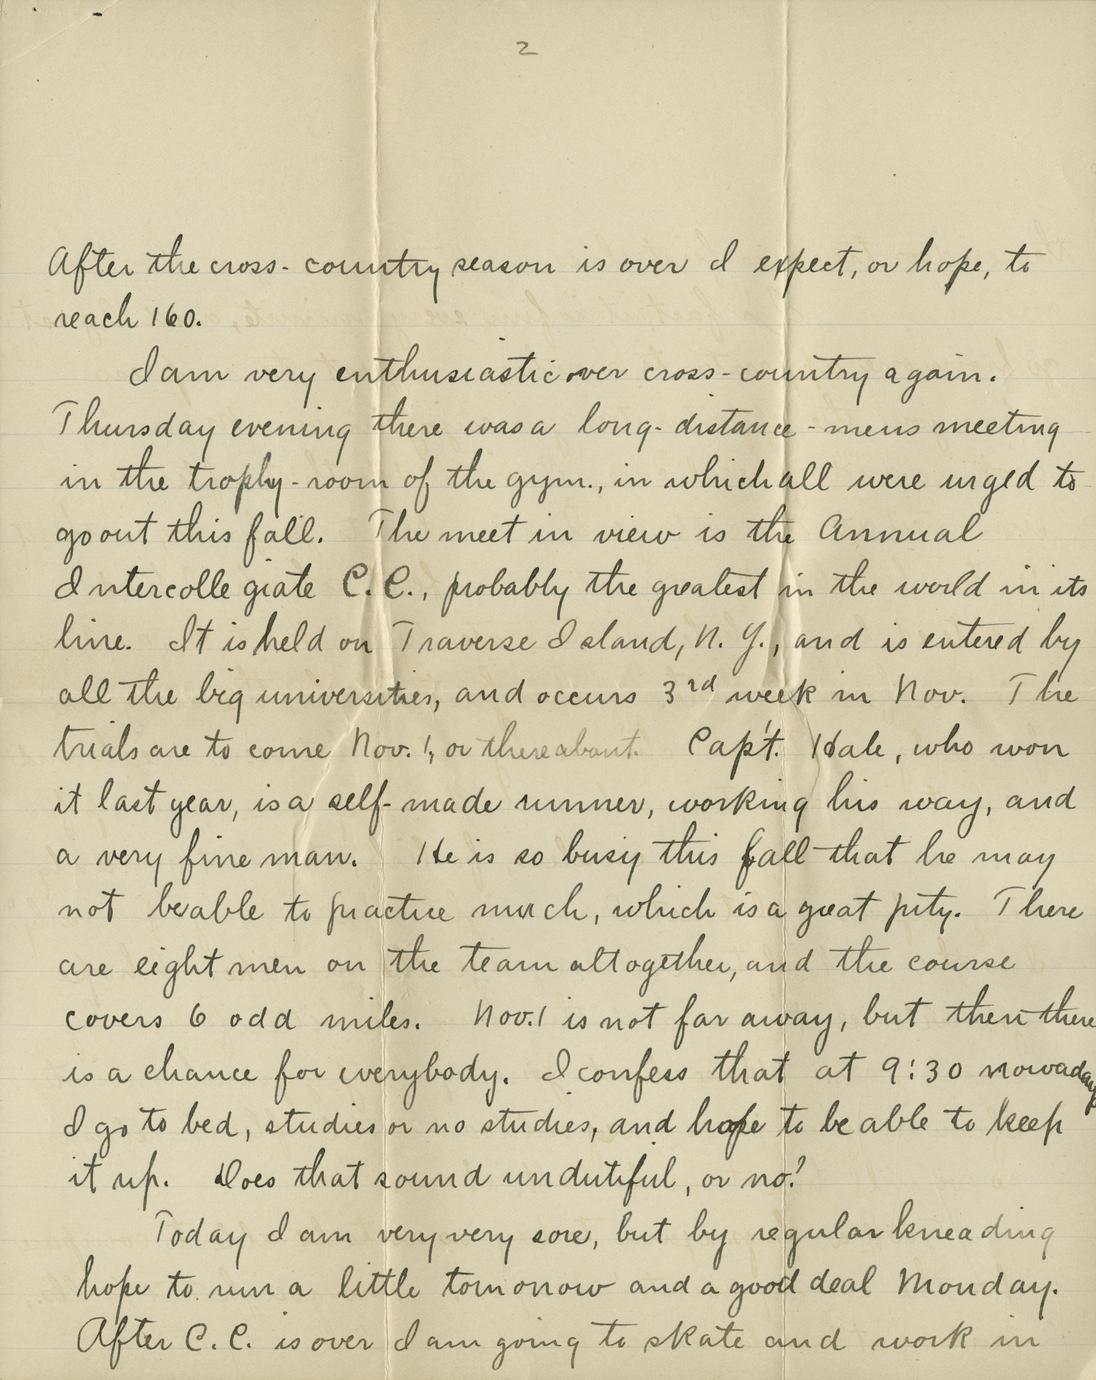 2
After the cross-country season is over I expect, or hope, to
reach 160.
I am very enthusiastic over cross-country again.
Thursday evening there was a long-distance-mens meeting
in the trophy-room of the gym., in which all were urged to
go out this fall. The meet in view is the Annual
Intercollegiate C.C., probably the greatest in the world in its
line. It is held on Traverse Island, N.Y., and is entered by
all the big universities, and occurs 3rd week in Nov. The
trials are to come Nov. 1, or thereabout. Cap't. Hale, who won
it last year, is a self-made runner, working his way, and
a very fine man. He is so busy this fall that he may
not be able to practice much, which is a great pity. There
are eight men on the team altogether, and the course
covers 6 odd miles. Nov. 1 is not far away, but then there
is a chance for everybody. I confess that at 9:30 nowadays
I go to bed, studies or no studies, and hope to be able to keep
it up. Does that sound undutiful, or no?
Today I am very very sore, but by regular kneading
hope to run a little tomorrow and a good deal Monday.
After C.C. is over I am going to skate and work in